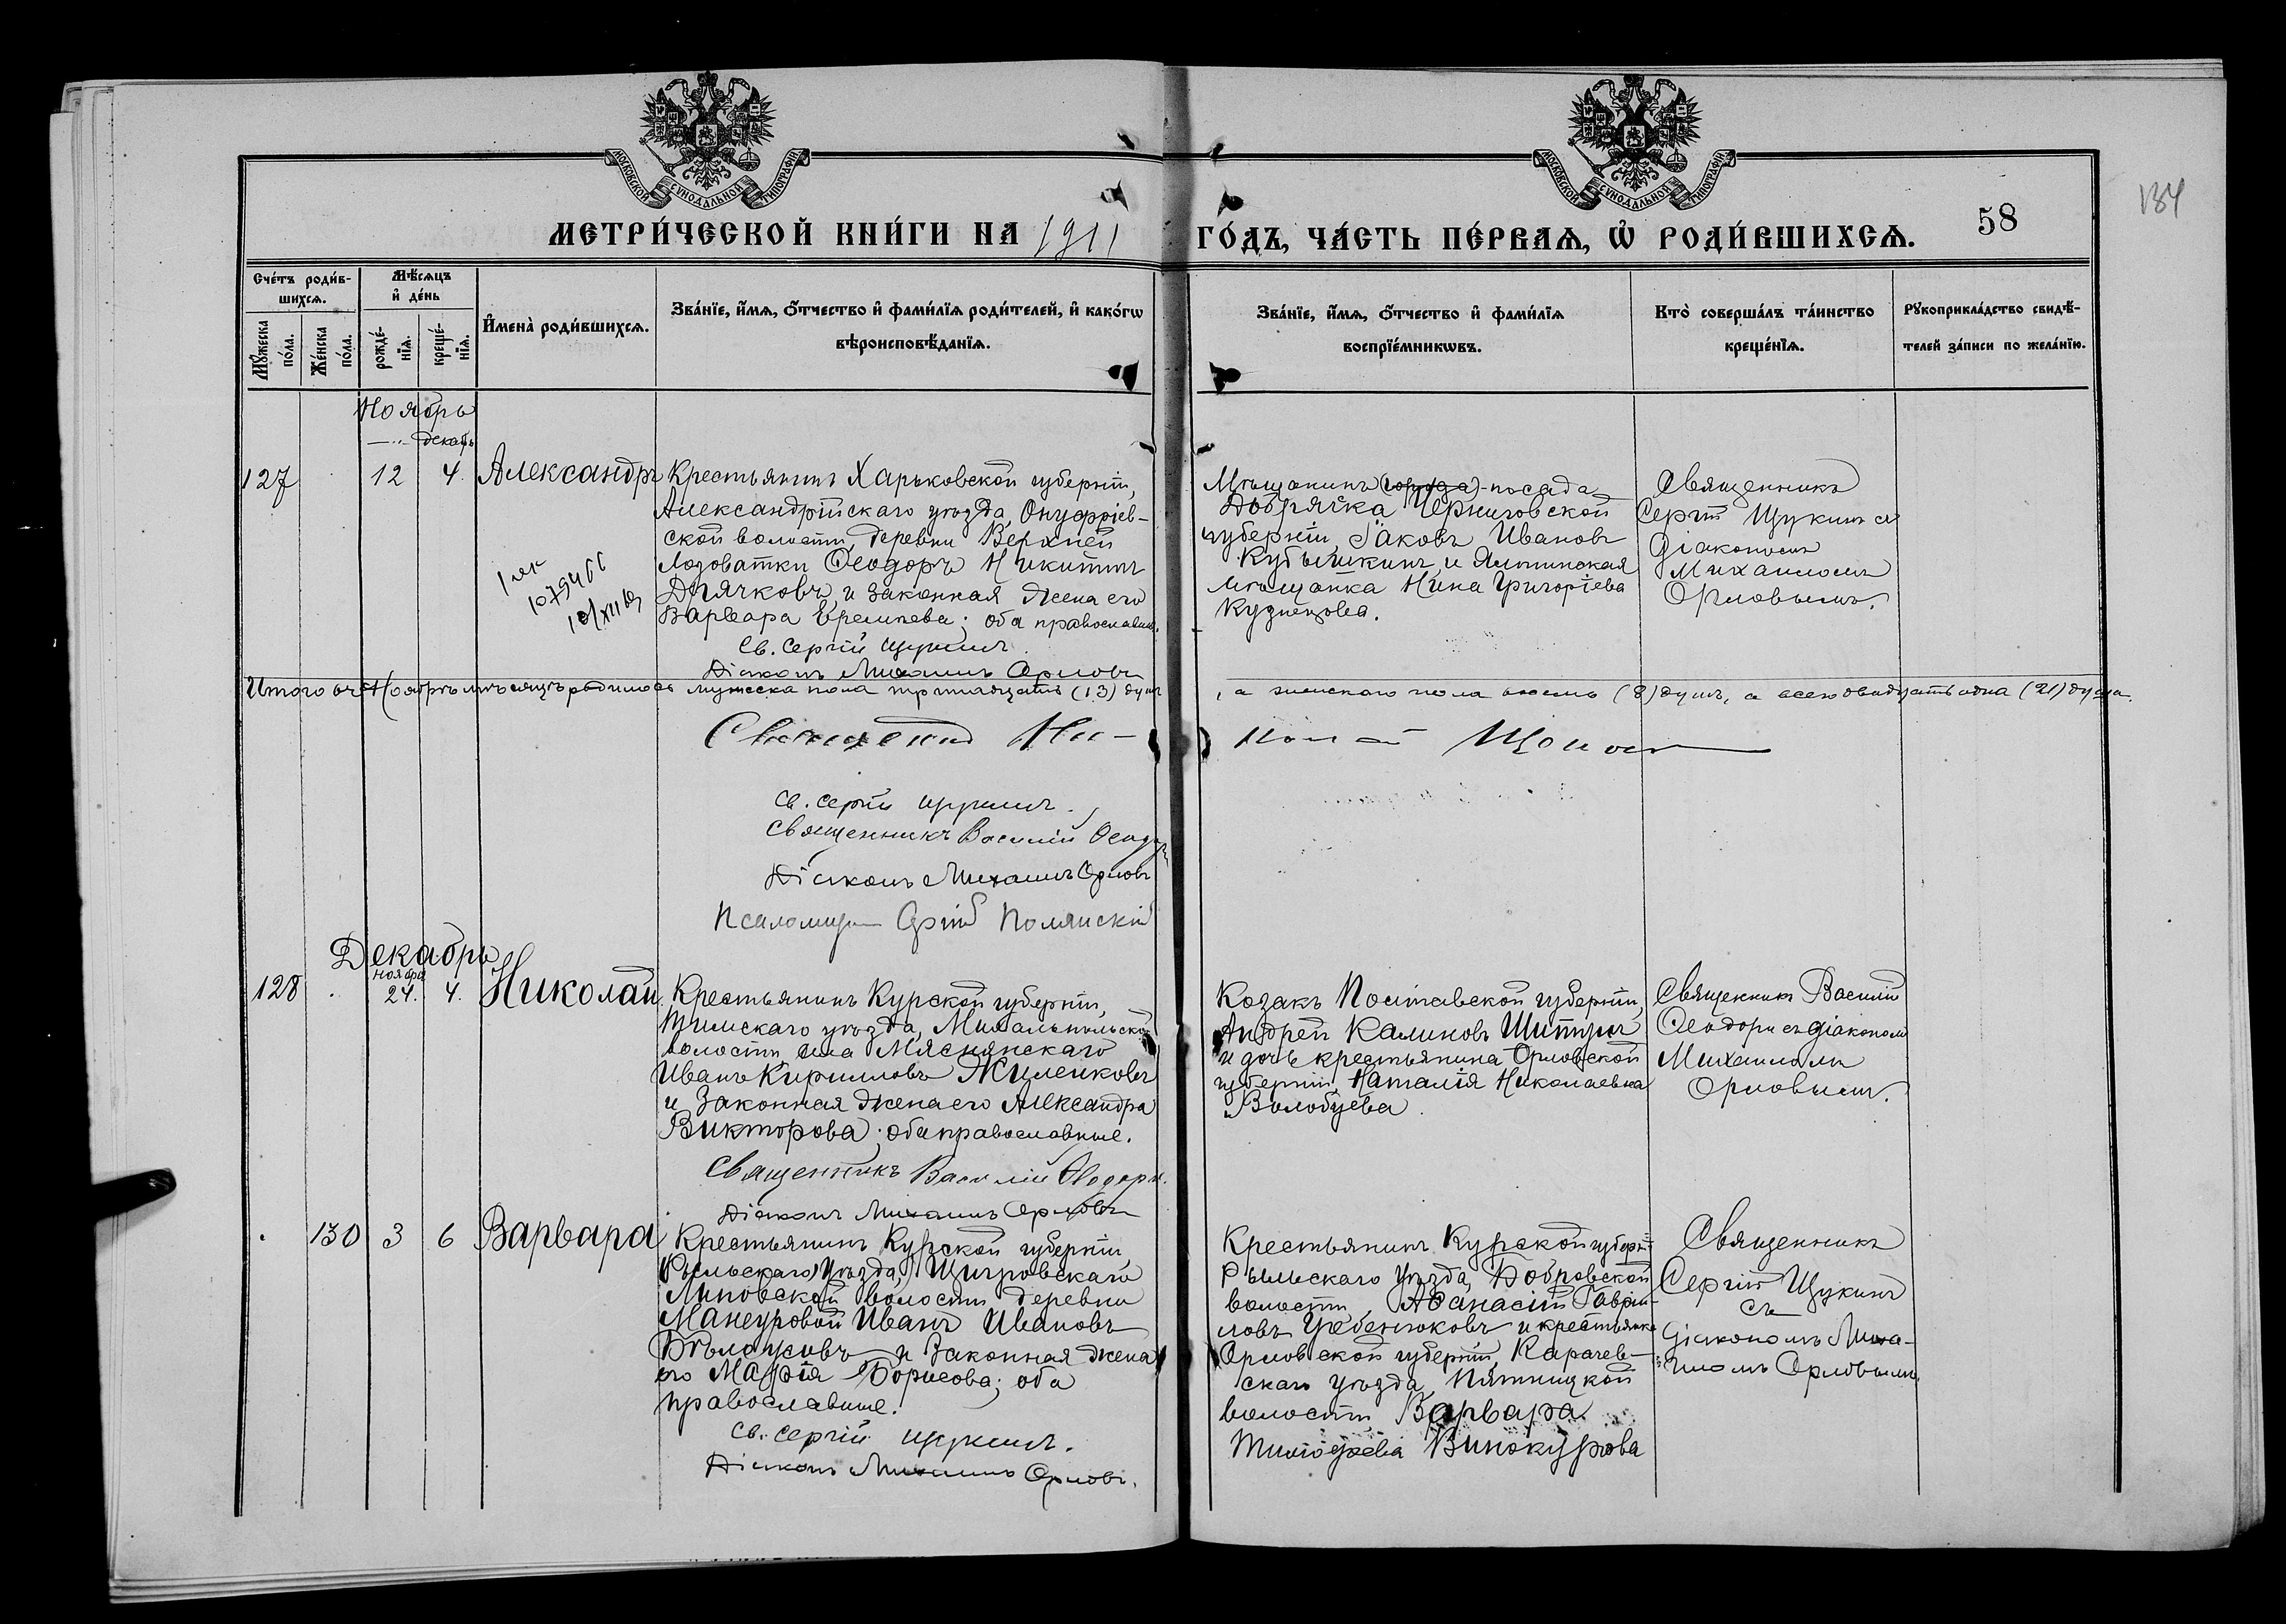 МОСКОВСКОЙ СѴНОДАЛЬНОЙ ТИПОГРАФІИ
МОСКОВСКОЙ СѴНОДАЛЬНОЙ ТИПОГРАФІИ
МЕТРИ́ЧЕСКОЙ КНИ́ГИ НА 1911
ГО́ДЪ, ЧА́СТЬ ПЕ́РВАѦ, Ѡ҆ РОДИ́ВШИХСѦ.
58
134
Сче́тъ роди́в-
шихсѧ.
Мѣ́сѧцъ
и҆ де́нь
Мꙋ́жеска
по́ла.
Же́нска
по́ла.
рожде́-
нїѧ.
креще́-
нїѧ.
И҆мена̀ роди́вшихсѧ.
Зва́нїе, и҆́мѧ, ѻ҆́тчество и҆ фами́лїѧ роди́телей, и҆ како́гѡ
вѣроисповѣ́данїѧ.
Зва́нїе, и҆́мѧ, ѻ҆́тчество и҆ фами́лїѧ
воспрїе́мникѡвъ.
Кто̀ соверша́лъ та́инство
креще́нїѧ.
Рꙋкоприкла́дство свидѣ́-
телей за́писи по жела́нїю.
Ноябрь
декабрь
127 12 4. Александръ
Крестьянинъ Харьковской губерніи,
Александрійскаго уѣзда, Онуфріев-
ской волости, деревни Верхней
Лозоватки Ѳеодоръ Никитинъ
Дьячковъ и законная жена его
Варвара Еремѣева; оба православн.
Св. Сергій Щукинъ.
Діаконъ Михаилъ Орловъ
1079466
Мѣщанинъ (города) посада
Добрянка Черниговской
губерніи Іаковъ Ивановъ
Кубышкинъ и Ялтинская
мѣщанка Нина Григоріева
Кузнецова.
Священникъ
Сергій Щукинъ съ
діакономъ
Михаиломъ
Орловымъ.
Итого въ Ноябрѣ мѣсяцѣ родилось мужеска пола тринадцать (13) душъ
, а женскаго пола восемь (8) душъ, а всего двадцать одна (21) душа.
Св. Сергій Щукинъ.
Священникъ Василій Ѳеодор
Діаконъ Михаилъ Орловъ
Псаломщ Полянскій
Декабрь
ноября
128 . 24. 4. Николай
Крестьянинъ Курской губерніи,
Тимскаго уѣзда,
волости, села Мяснянскаго
Иванъ Кирилловъ Жиленковъ
и законная жена его Александра
Викторова; оба православные.
Священникъ Василій Ѳеодори.
Діаконъ Михаилъ Орловъ
Козакъ Полтавской губерніи,
Андрей Калиновъ
и дочь крестьянина Орловской
губерніи, Наталія Николаевна
Волобуева.
Священникъ Василій
Ѳеодори съ діакономъ
Михаиломъ
Орловымъ.
. 130 3 6 Варвара
Крестьянинъ Курской губерніи
(Рыльскаго) уѣзда, Щигровскаго
Липовской волости деревни
Мансуровой Иванъ Ивановъ
Бѣлоусовъ и законная жена
его Марѳа Борисова; оба
православные.
Св. Сергій Щукинъ.
Діаконъ Михаилъ Орловъ.
Крестьянинъ Курской губерніи
Рыльскаго уѣзда, Бобровской
волости, Аѳанасій Гаврі-
ловъ Гребенюковъ и крестьянка
Орловской губерніи, Карачев-
скаго уѣзда, Пятницкой
волости Варвара
Тимоѳеева Винокурова
Священникъ
Сергій Щукинъ
съ
діакономъ Миха-
иломъ Орловымъ.